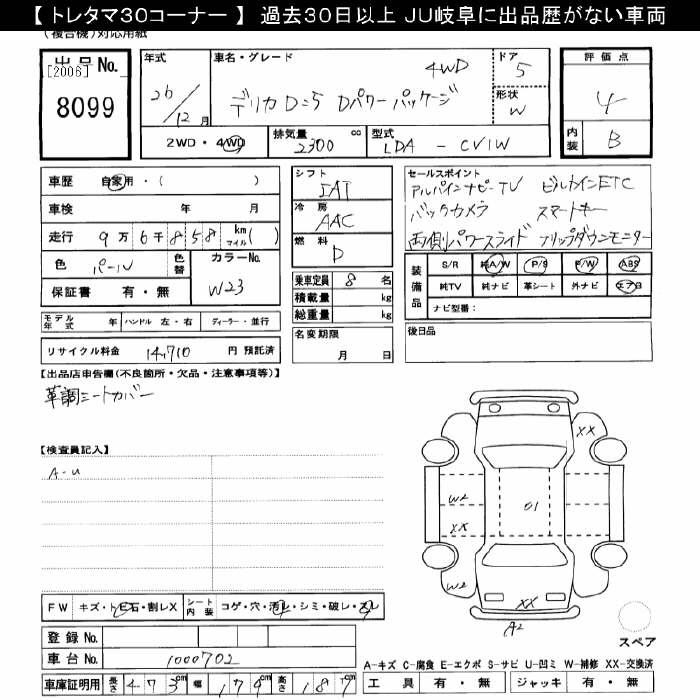 【 トレタマ30コーナー 】 過去30日以上 JU岐阜に出品歴がない車両
(複合機)対応用紙
出品No.
[2006]
8099
年式
26/12月
車名・グレード
4WD
デリカD:5 Dパワーパッケージ
ドア
5
形状
W
評価点
4
内装
B
2WD・4WD
排気量
2300 cc
型式
LDA - CV1W
車歴 自家用・( )
車検 年 月
走行 9万6千858 km マイル( )
色 パール 色替
カラーNo.
W23
保証書 有・無
シフト
5AT
冷房
AAC
燃料
D
乗車定員 8 名
積載量 kg
総重量 kg
名変期限
月 日
セールスポイント
アルパインナビ-TV ビルトインETC
バックカメラ スマートキー
両側パワースライド フリップダウンモニター
装備品
S/R 純A/W P/S P/W ABS
純TV 純ナビ 革シート 外ナビ エアB
ナビ型番:
後日品
モデル年式 年 ハンドル 左・右 ディーラー・並行
リサイクル料金 14,710 円 預託済
【出品店申告欄(不良箇所・欠品・注意事項等)】
革調シートカバー
【検査員記入】
A-U
XX
W2
01
XX
W2
XX
A2
スペア
FW キズ・ト石・割レX シート内装 コゲ・穴・汚レ・シミ・破レ・スレ
登録No.
車台No. 1000702
車庫証明用 長さ 473cm 幅 179cm 高さ 187cm
A-キズ C-腐食 E-エクボ S-サビ U-凹ミ W-補修 XX-交換済
工具 有・無 ジャッキ 有・無